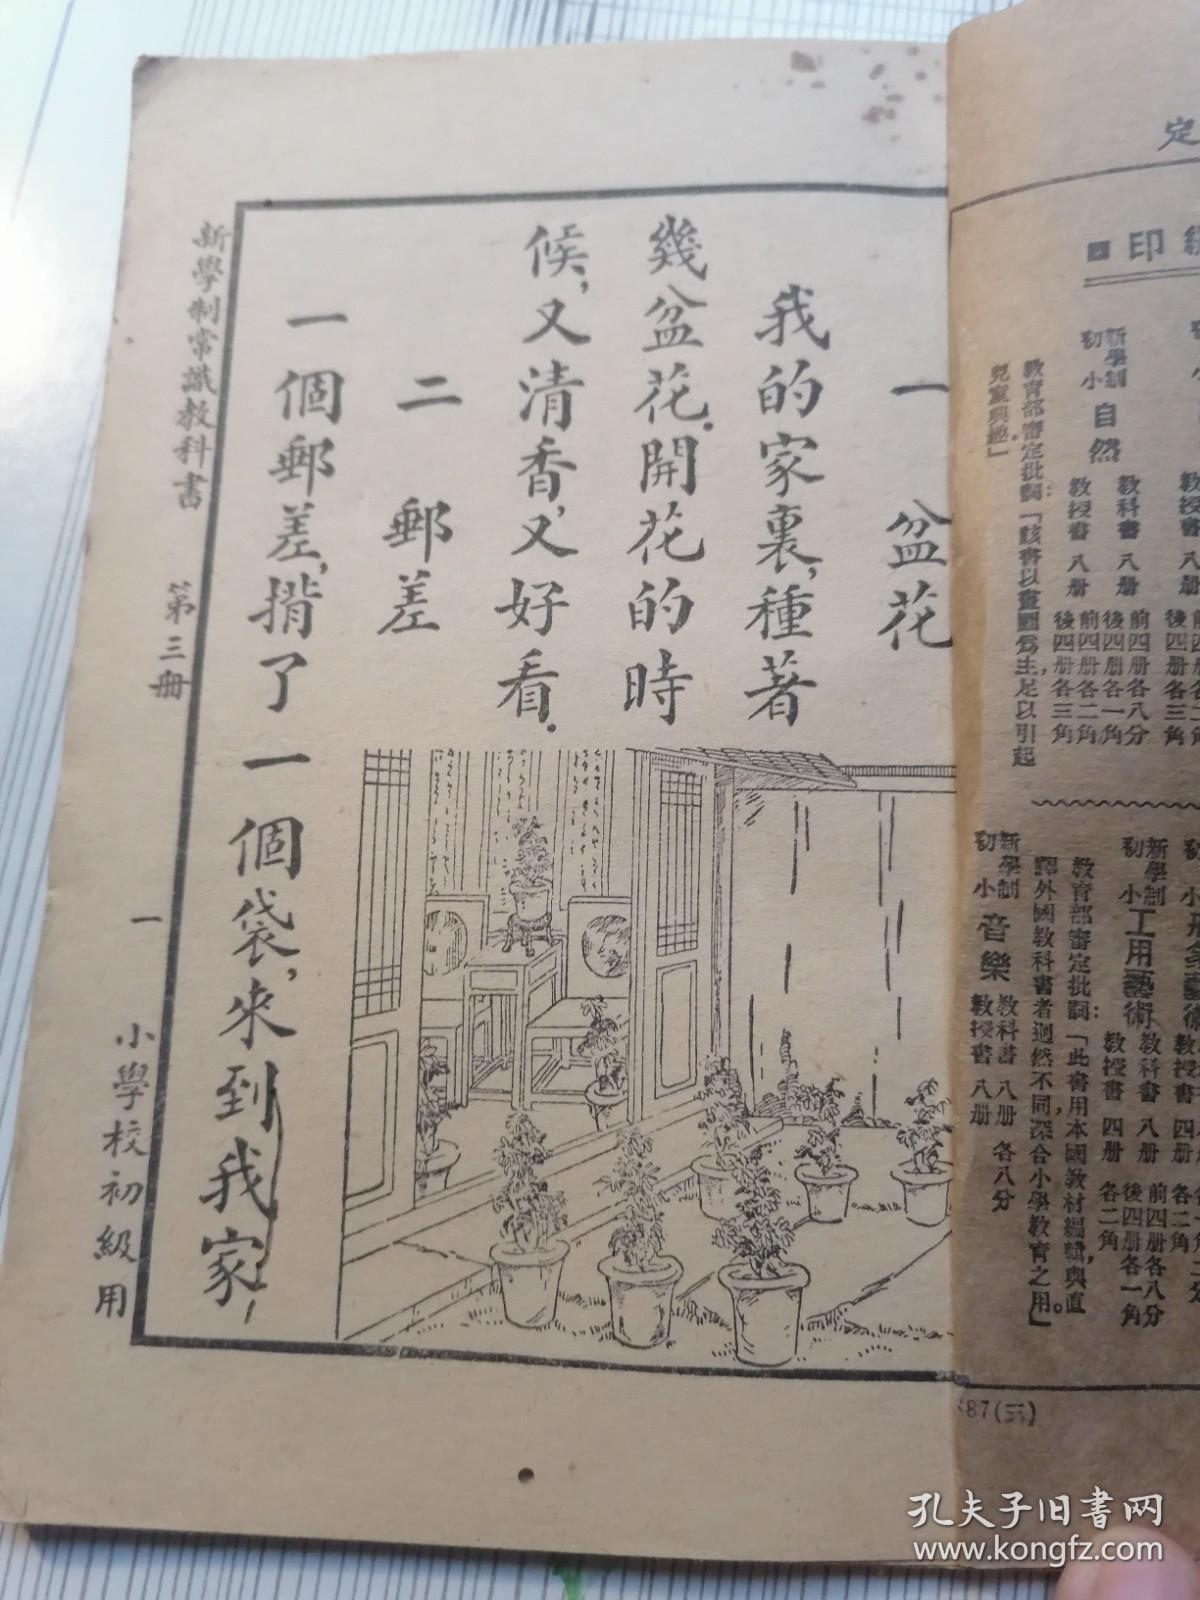 定
印
新學制
初小
自然
教科書 八册 前四册各八分 後四册各一角
教授書 八册 前四册各二角 後四册各三角
教育部審定批詞：「該書以畫圖爲主，足以引起
兒童興趣」
新學制
初小
工用藝術
教科書 八册 前四册各八分 後四册各一角
教授書 四册 各二角
教育部審定批詞：「此書用本國教材編輯，與直
譯外國教科書者迥然不同，深合小學教育之用。」
新學制
初小
音樂
教科書 八册 各八分
教授書 八册
87(三)
一 盆花
我的家裏，種著
幾盆花．開花的時
候，又清香，又好看．
二 郵差
一個郵差，揹了一個袋，來到我家，
新學制常識教科書 第三册 一 小學校初級用
孔夫子旧书网
www.kongfz.com